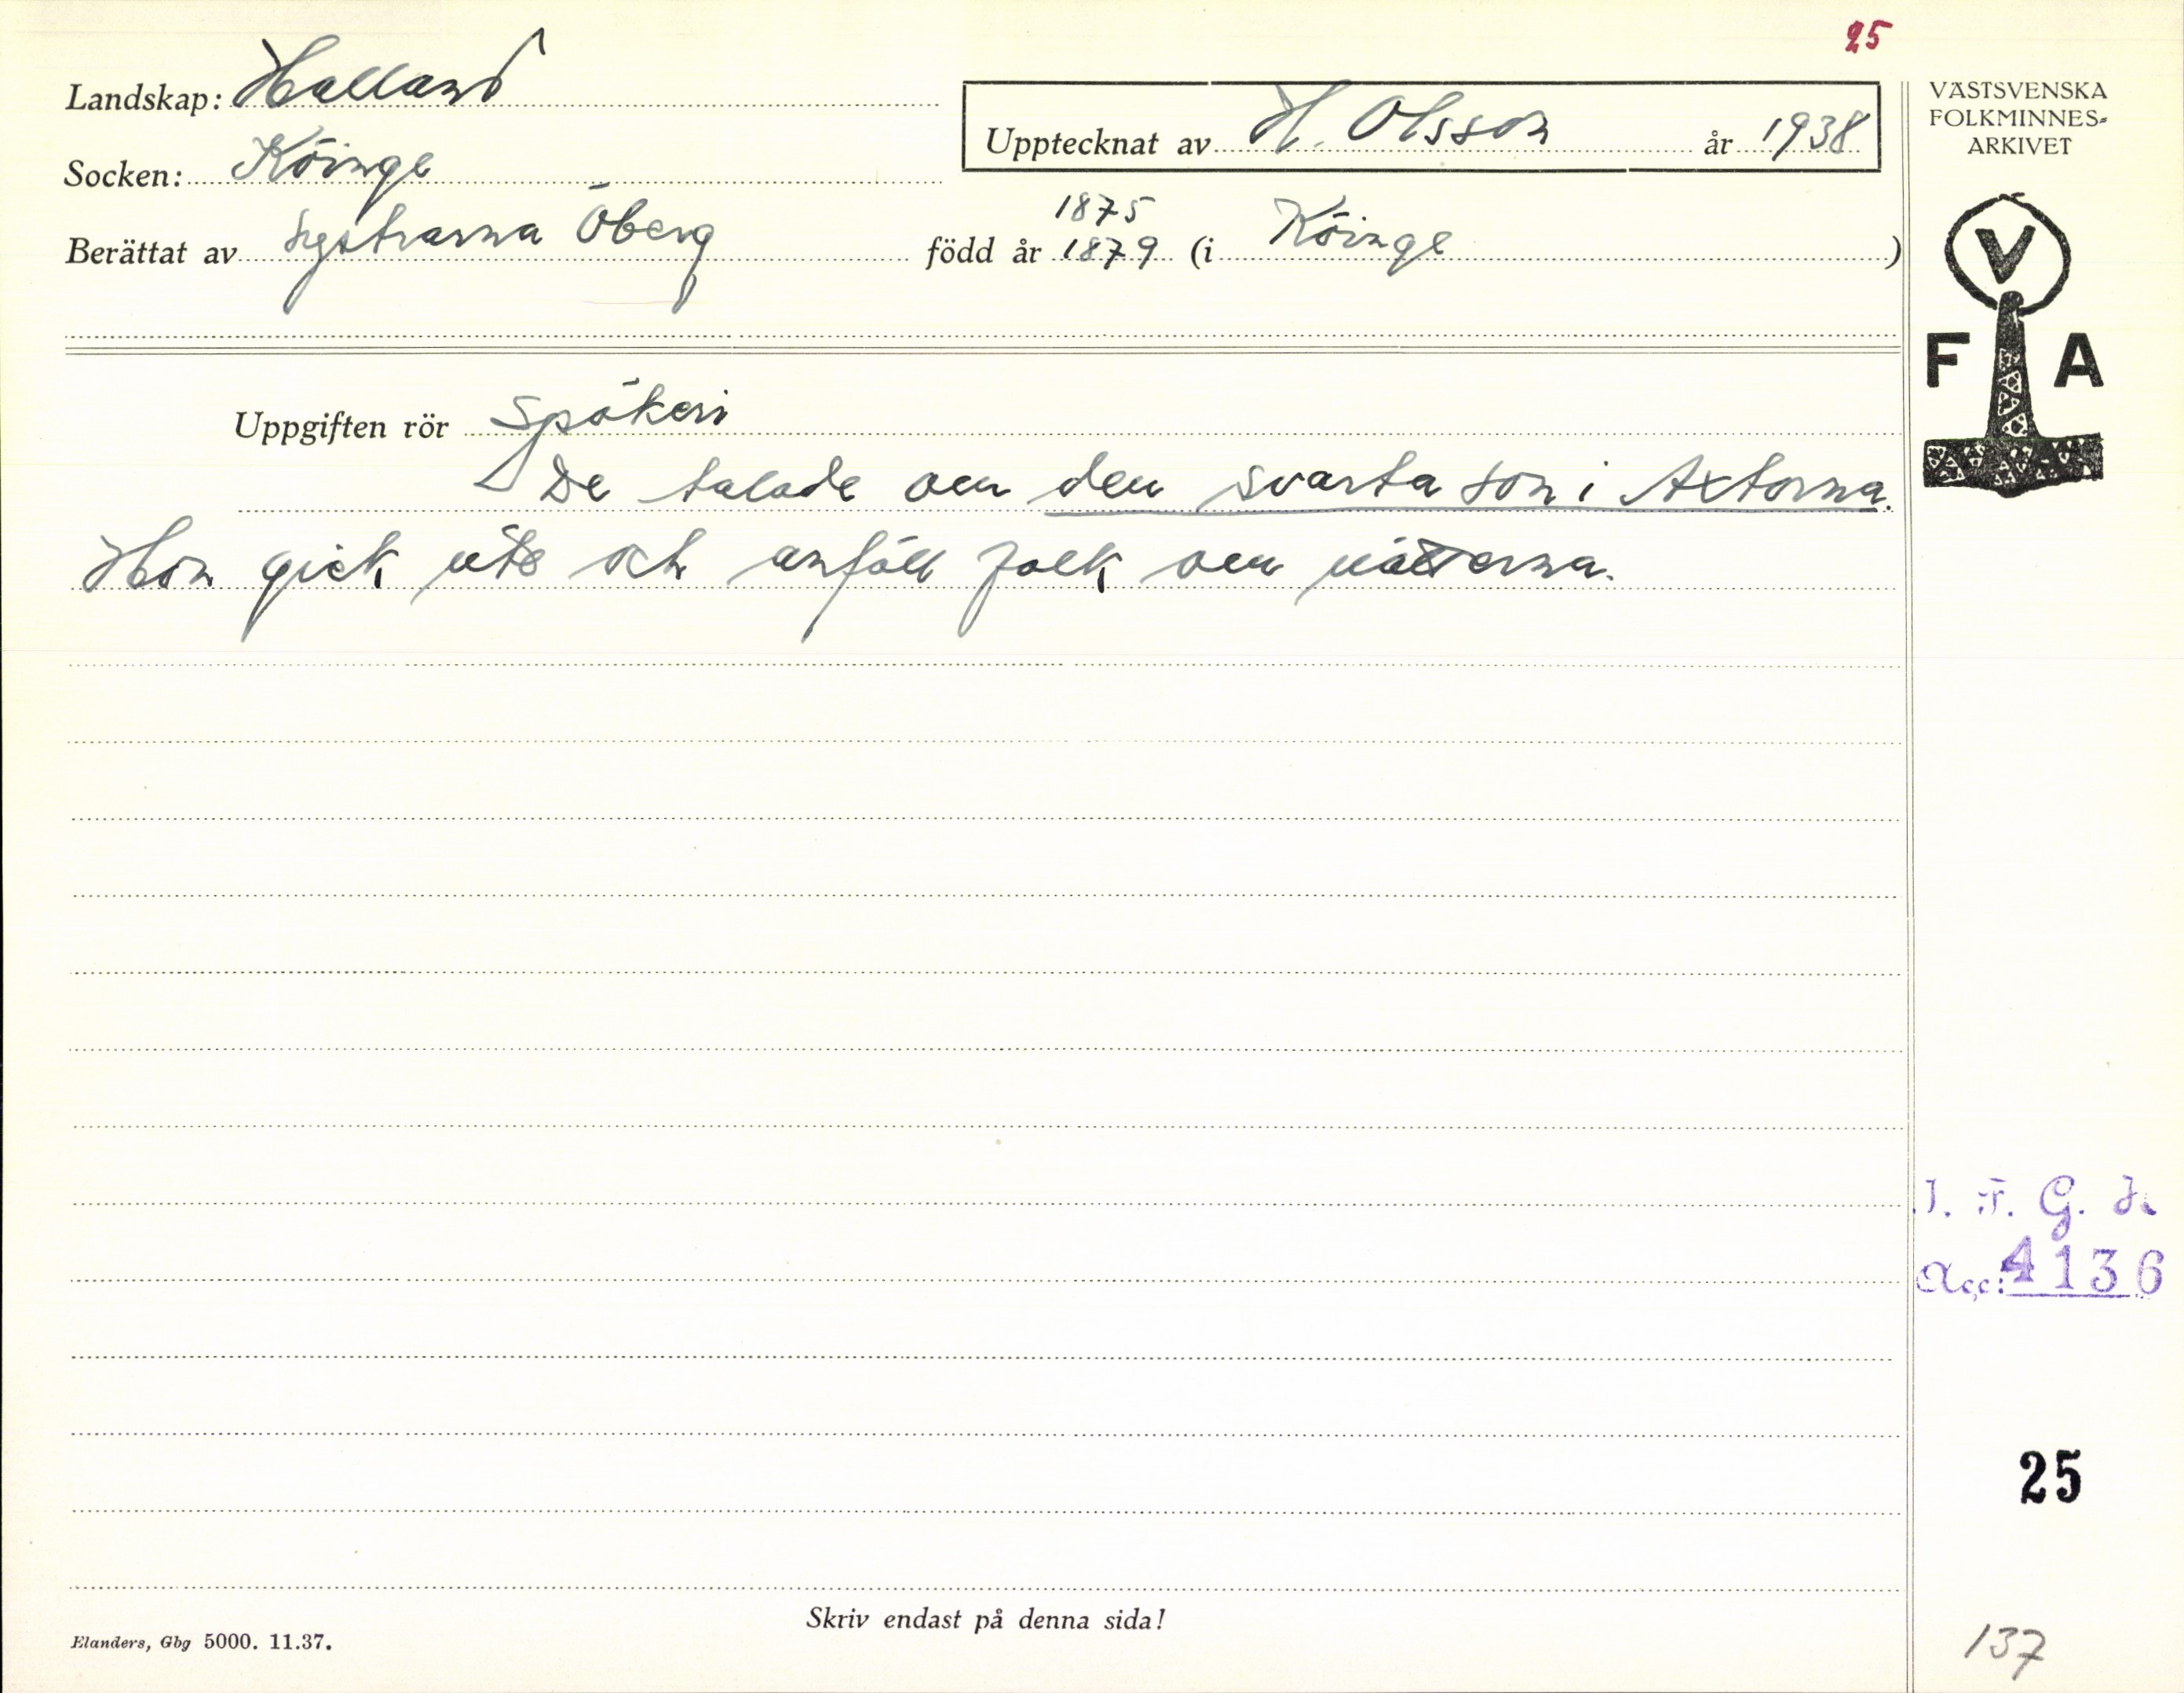 25
Landskap: Halland
Socken: Köinge
Upptecknat av H. Olsson år 1938
VÄSTSVENSKA
FOLKMINNES-
ARKIVET
1875
Berättat av systrarna Öberg född år 1879 (i Köinge)
V
F A
Uppgiften rör Spökeri
De talade om den svarta son i Axtorna.
Hon gick ute och anföll folk om nätterna.
I. F. G. H.
Acc: 4136
25
Skriv endast på denna sida!
Elanders, Gbg 5000. 11.37.
137